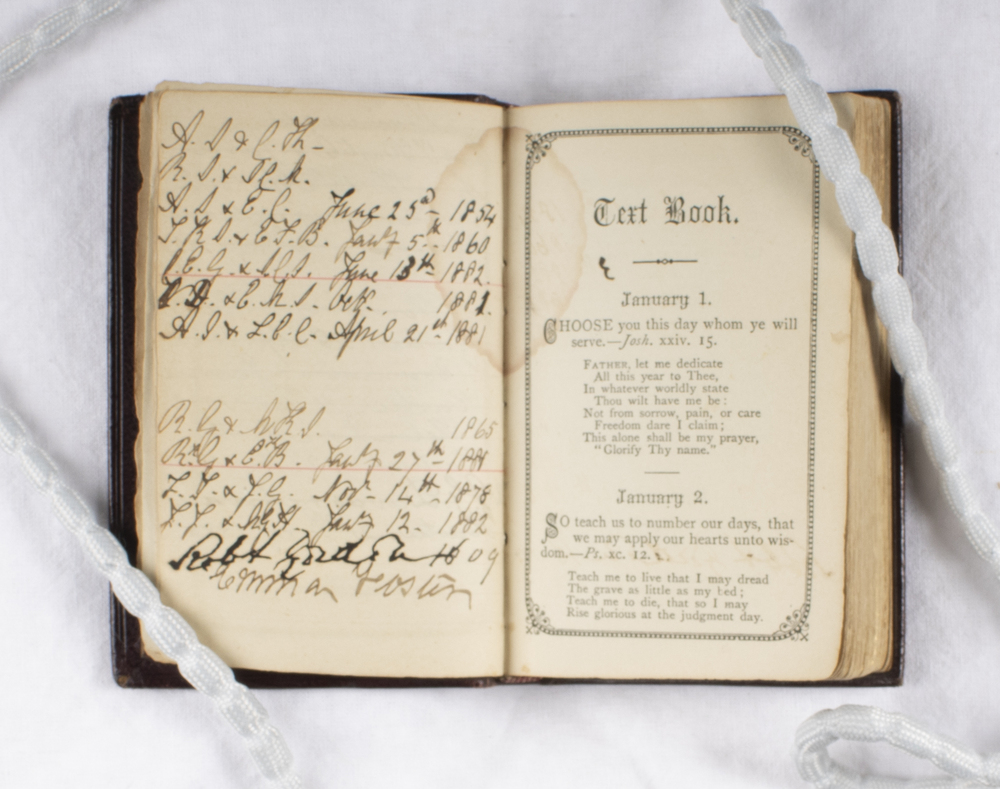 A. I & C. Th-
R. I. & H. M.
A. I & E. C. June 25th 1854
T. R. I. & E. F. B. Jany 5th 1860
June 13th 1882.
& E. M. I. Oct. 1881.
A. I. & L. B. C. April 21st 1881
R. G & 1865
R. G & E. B. Jany 27th
L. F. & J. G. Nov- 14th 1878
Jany 12- 1882
Robt
Foster
Text Book.
January 1.
CHOOSE you this day whom ye will
serve.—Josh. xxiv. 15.
FATHER, let me dedicate
All this year to Thee,
In whatever worldly state
Thou wilt have me be:
Not from sorrow, pain, or care
Freedom dare I claim;
This alone shall be my prayer,
"Glorify Thy name."
January 2.
SO teach us to number our days, that
we may apply our hearts unto wis-
dom.—Ps. xc. 12.
Teach me to live that I may dread
The grave as little as my bed;
Teach me to die, that so I may
Rise glorious at the judgment day.